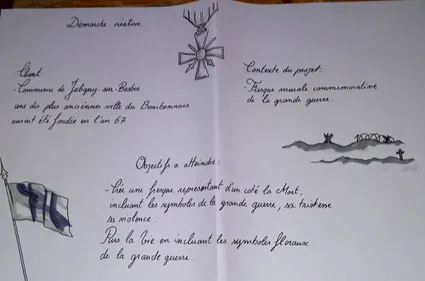 Démarche créative.
Client.
- Commune de Jaligny-sur-Besbre
une des plus anciennes ville du Bourbonnais
aurait été fondée en l'an 67.
Contexte du projet.
- Fresque murale commémorative
de la grande guerre.
Objectifs a atteindre:
- Crée une fresque représentant d'un coté la Mort,
incluant les symboles de la grande guerre, sa tristesse
sa violence.
Puis la Vie en incluant les symboles floraux
de la grande guerre.